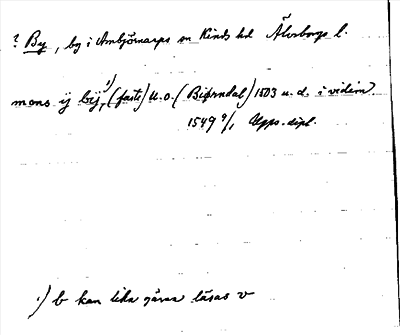 ? By, by i Ambjörnarps sn Kinds hd Älvsborgs l.
mons ij bij,¹) (faste) u.o. (Biørndal) 1503 u.d. i vidim
1549 9/1 Upps. dipl.
¹) b kan lika gärna läsas v